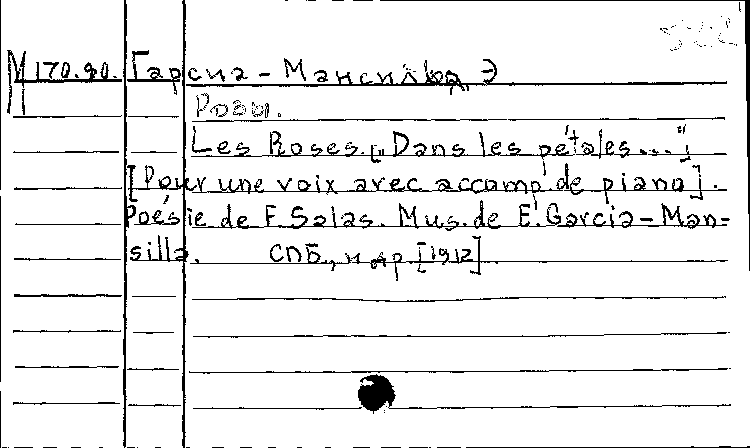 М 170.90. Гарсиа-Мансилья, Э
Розы.
Les Roses. ["Dans les pétales..."]
[Pour une voix avec accomp. de piano].
Poésie de F. Salas. Mus. de E. Garcia-Man-
silla. СПБ., [1912].